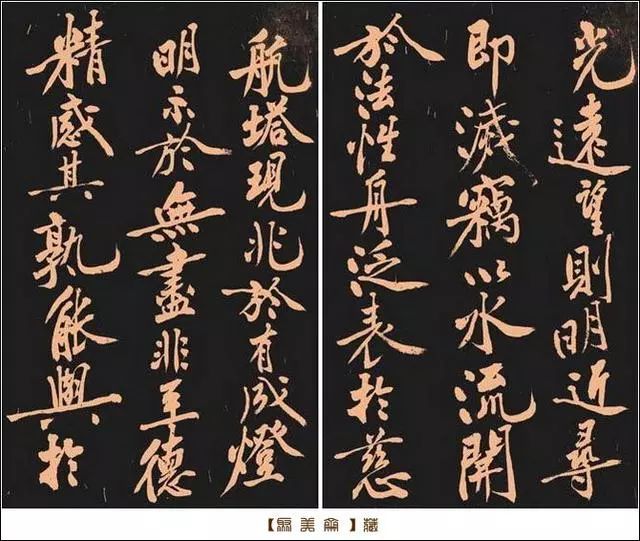 光遠望則明近尋
即滅竊以水流開
於法性舟泛表於慈
航塔現兆於有成燈
明示於無盡非至德
精感其孰能與於
【美】藏